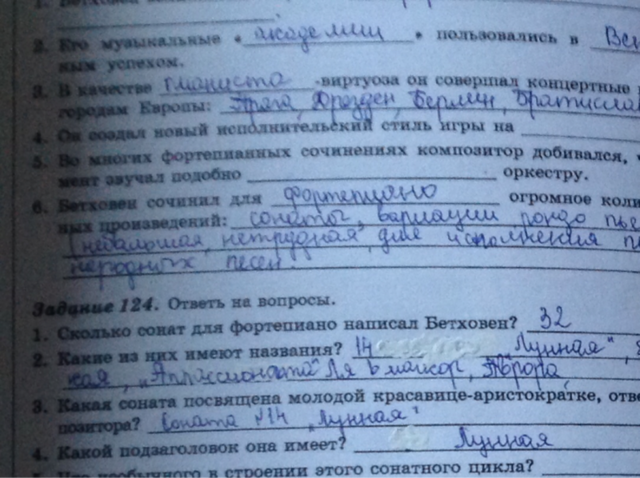 1. Бетховен
2. Его музыкальные « академии » пользовались в Вен
ным успехом.
3. В качестве пианиста -виртуоза он совершал концертные
городам Европы: Прага, Дрезден, Берлин, Братисла
4. Он создал новый исполнительский стиль игры на
5. Во многих фортепианных сочинениях композитор добивался,
мент звучал подобно оркестру.
6. Бетховен сочинил для фортепиано огромное коли
ных произведений: сонаты, вариации рондо пье
(небольшая, нетрудная для исполнения п
народных песен.
Задание 124. Ответь на вопросы.
1. Сколько сонат для фортепиано написал Бетховен? 32
2. Какие из них имеют названия? 14 "Лунная",
кая, „Аппассионата" Ля b мажор, Аврора,
3. Какая соната посвящена молодой красавице-аристократке, отве
позитора? Соната №14 „Лунная"
4. Какой подзаголовок она имеет? Лунная
5. Что необычного в строении этого сонатного цикла?